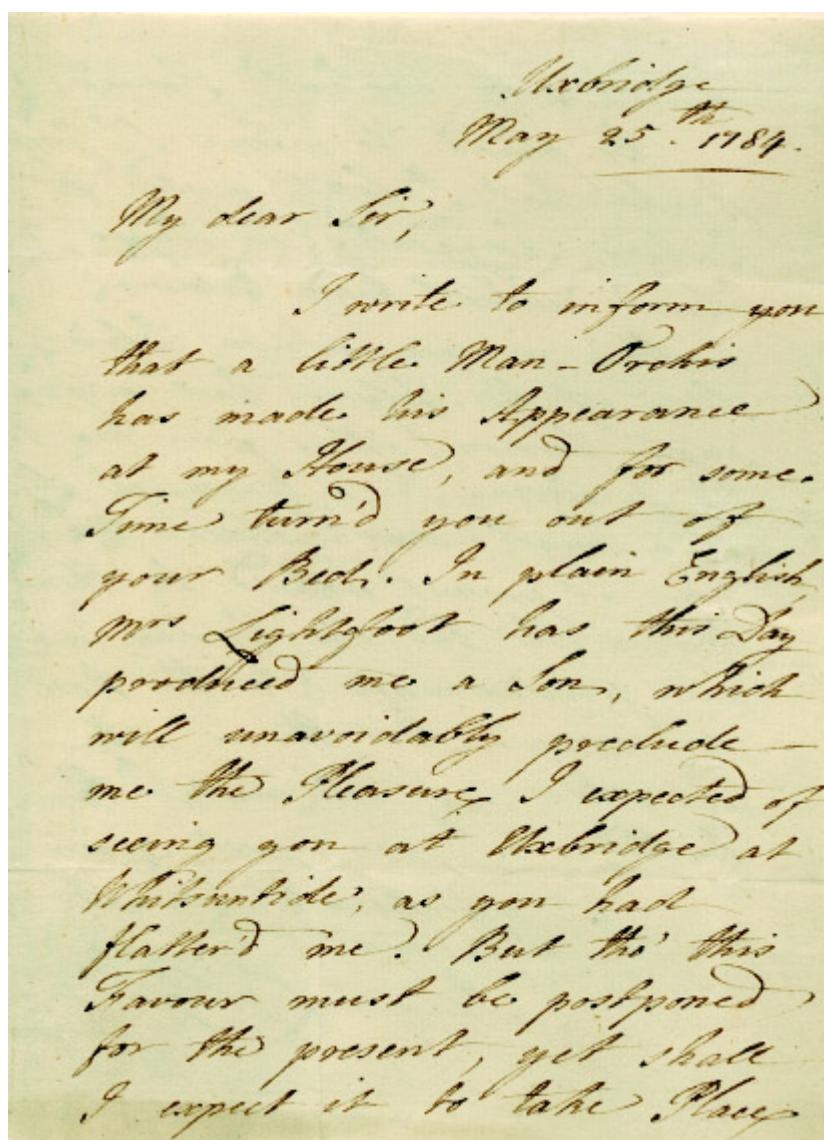 Uxbridge
May 25.th 1784.
My dear Sir,
I write to inform you
that a little Man-Orchis
has made his Appearance
at my House, and for some
Time turn'd you out of
your Bed. In plain English,
Mrs Lightfoot has this Day
produced me a Son, which
will unavoidably preclude
me the Pleasure I expected of
seeing you at Uxbridge at
Whitsuntide, as you had
flatter'd me. But tho' this
Favour must be postponed
for the present, yet shall
I expect it to take Place